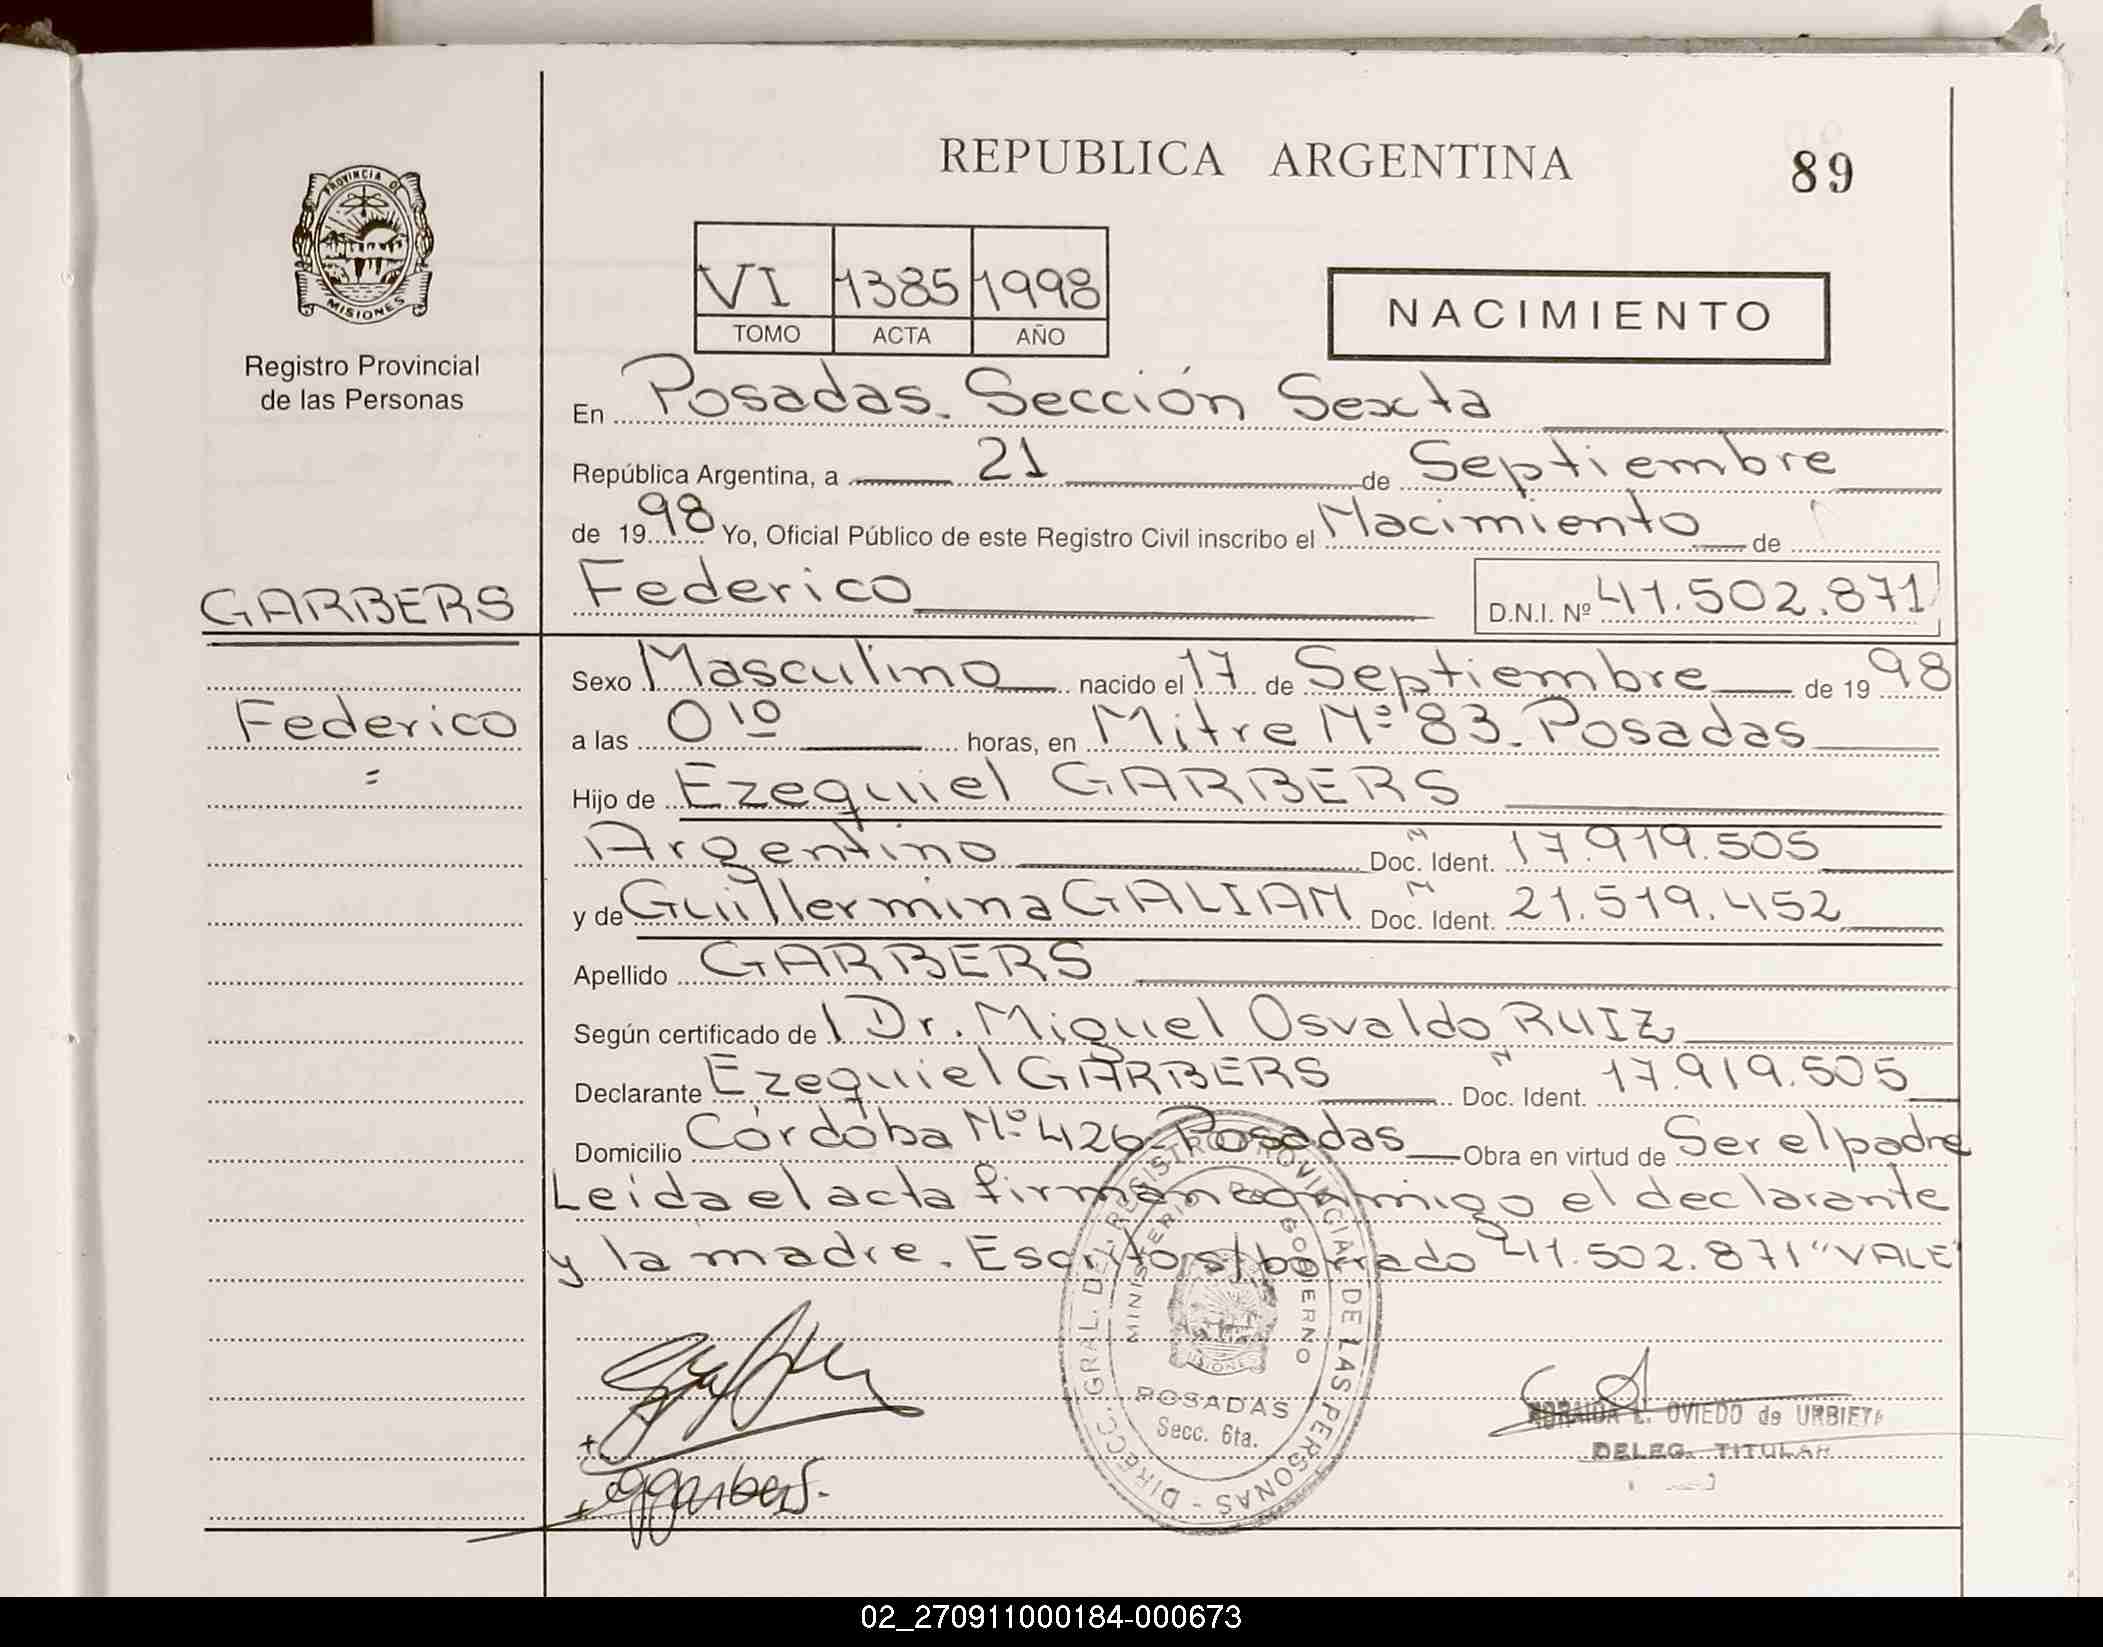 REPUBLICA ARGENTINA
89
PROVINCIA DE
MISIONES
Registro Provincial
de las Personas
VI 1385 1998
TOMO ACTA AÑO
NACIMIENTO
En Posadas. Sección Sexta
República Argentina, a 21 de Septiembre
de 1998 Yo, Oficial Público de este Registro Civil inscribo el Nacimiento de
GARBERS
Federico D.N.I. Nº 41.502.871
Sexo Masculino nacido el 17 de Septiembre de 1998
Federico
=
a las 0¹⁰ horas, en Mitre Nº 83. Posadas
Hijo de Ezequiel GARBERS
Argentino Doc. Ident. N 17.919.505
y de Guillermina GALIAN Doc. Ident. N 21.519.452
Apellido GARBERS
Según certificado de l Dr. Miguel Osvaldo RUIZ
Declarante Ezequiel GARBERS Doc. Ident. N 17.919.505
Domicilio Córdoba Nº 426. Posadas Obra en virtud de Ser el padre
Leída el acta firman conmigo el declarante
y la madre. Escrito s/borrado 41.502.871 "VALE"
DIRECC. GRAL. DEL REGISTRO PROVINCIAL DE LAS PERSONAS -
MINISTERIO DE GOBIERNO
MISIONES
POSADAS
Secc. 6ta.
L. OVIEDO de URBIETA
DELEG. TITULAR
ggarbers.
02_270911000184-000673